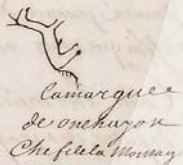 la marque
de onehayon
Chef de la Montag